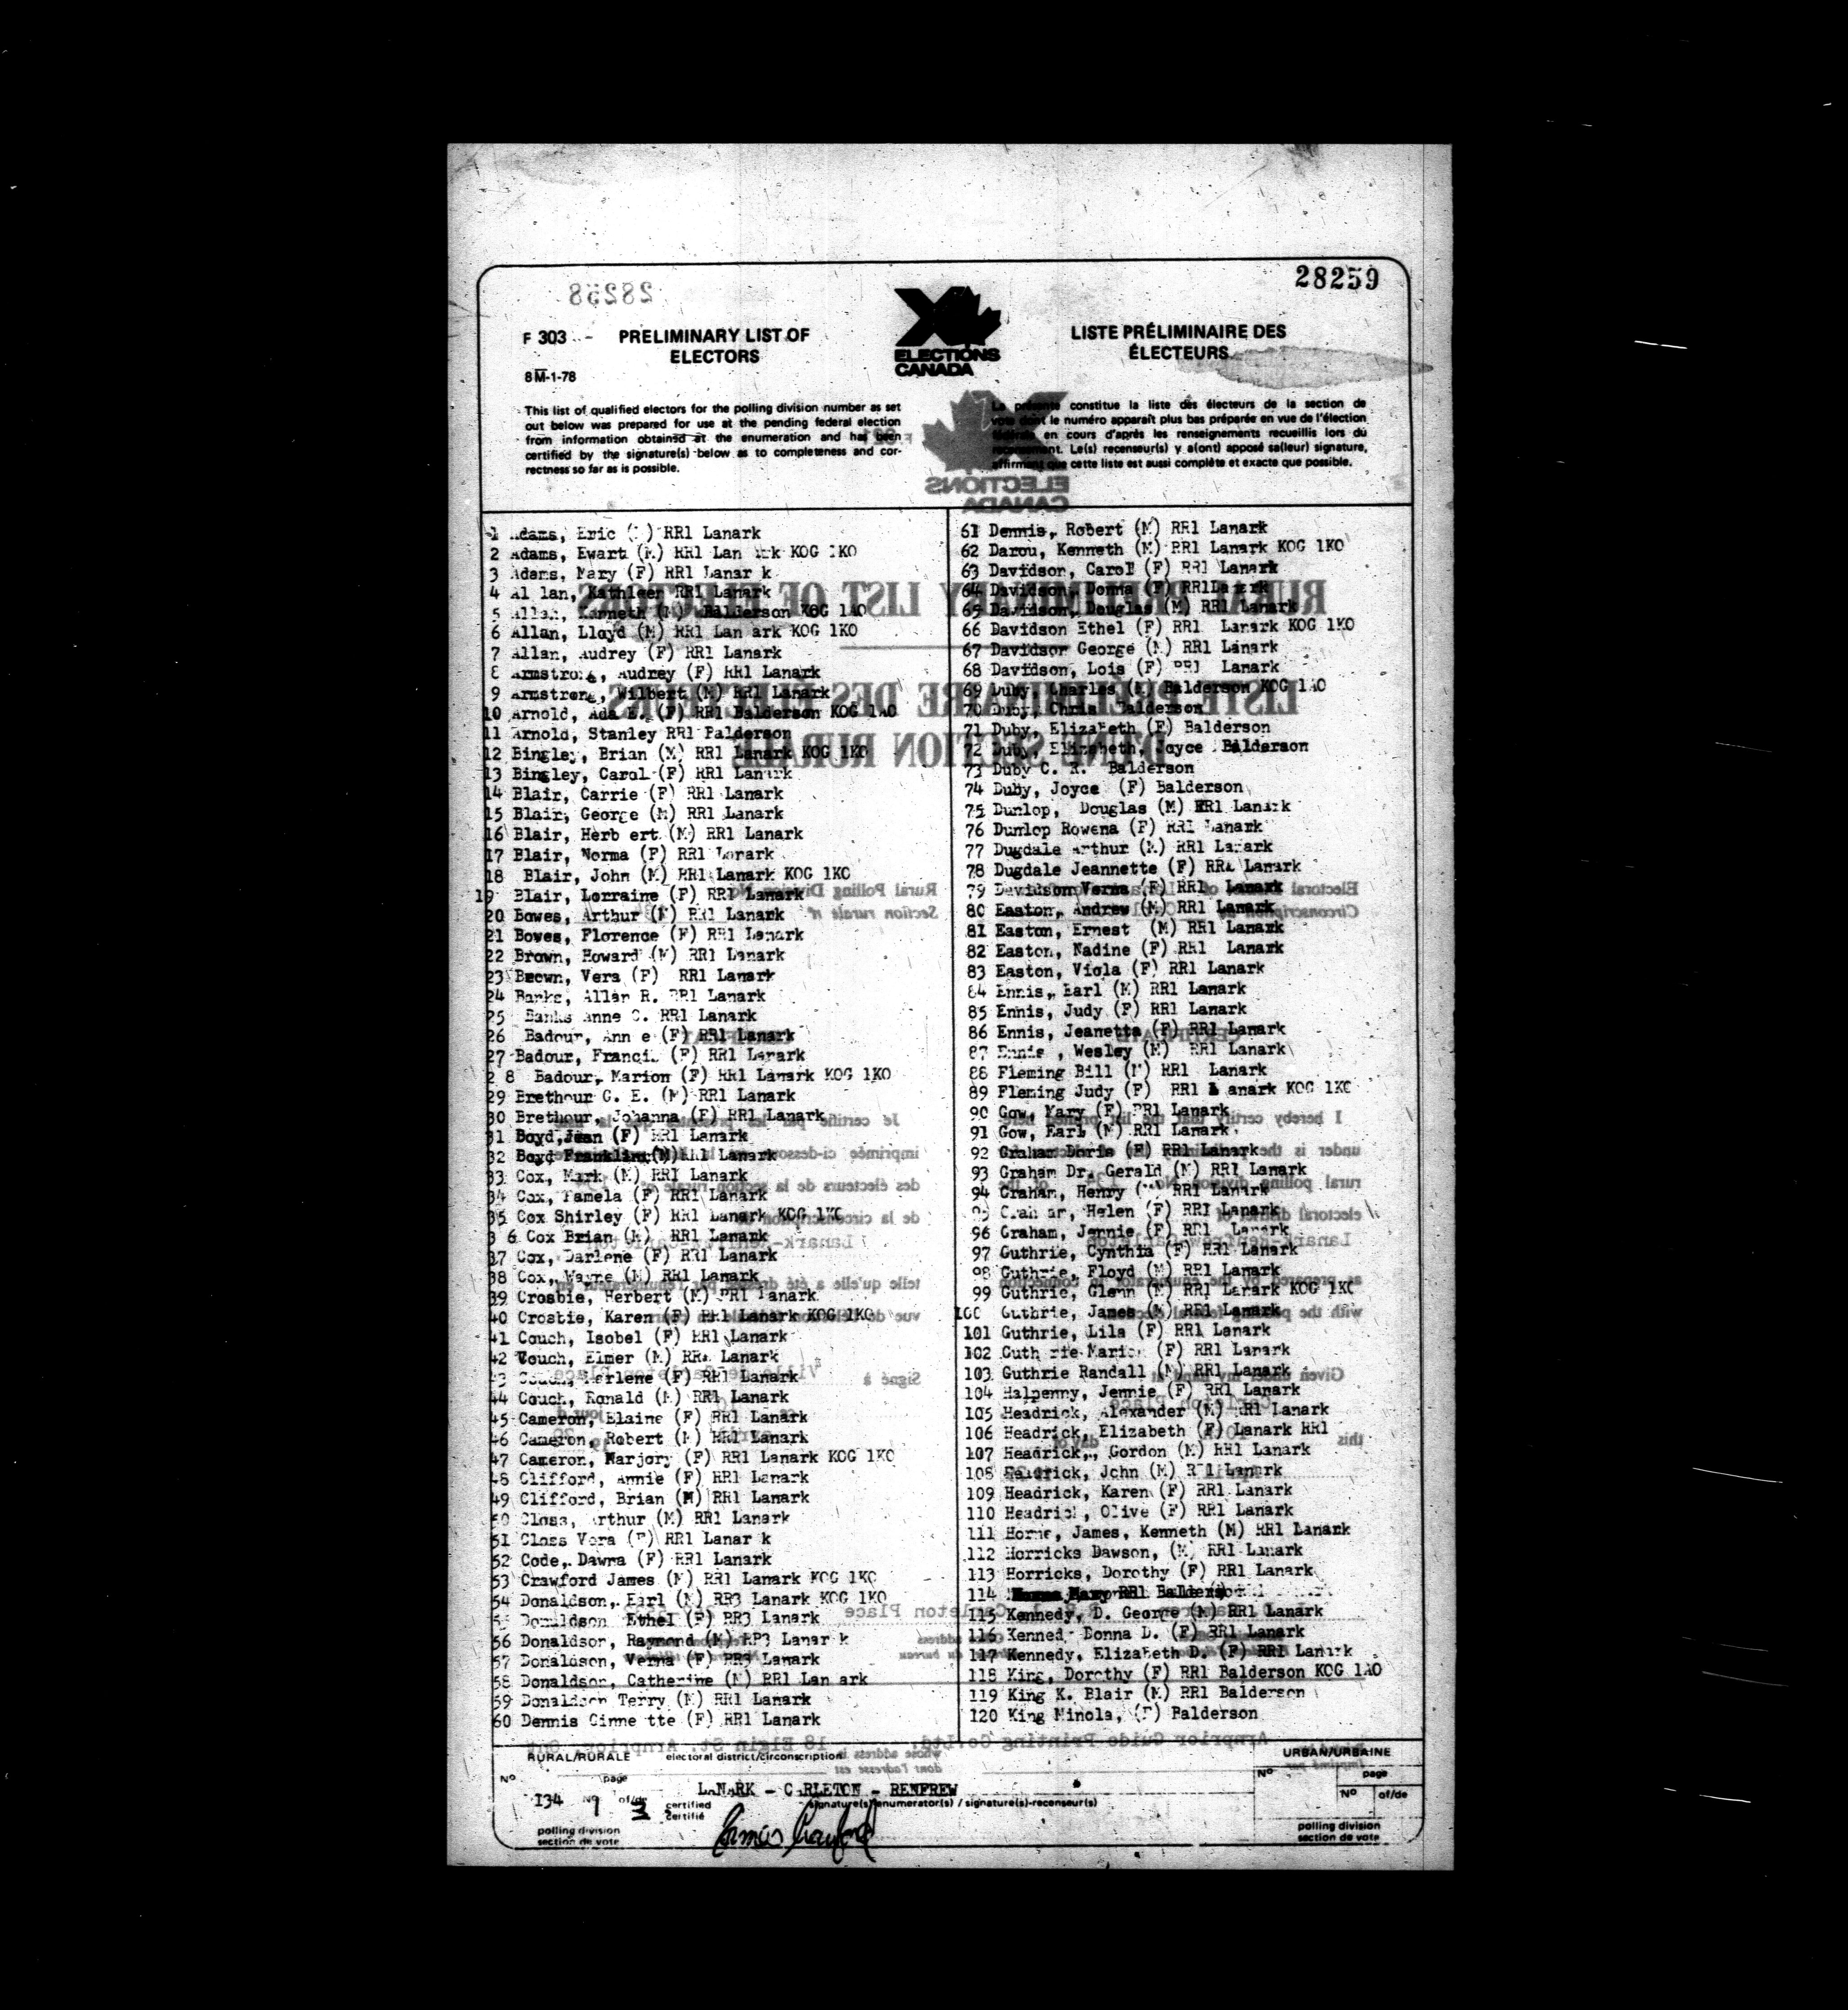 28259
F 303 - PRELIMINARY LIST OF
ELECTORS
8M-1-78
ELECTIONS
CANADA
LISTE PRÉLIMINAIRE DES
ÉLECTEURS
This list of qualified electors for the polling division number as set
out below was prepared for use at the pending federal election
from information obtained at the enumeration and has been
certified by the signature(s) below as to completeness and cor-
rectness so far as is possible.
La présente constitue la liste des électeurs de la section de
vote dont le numéro apparaît plus bas préparée en vue de l'élection
fédérale en cours d'après les renseignements recueillis lors du
recensement. Le(s) recenseur(s) y a(ont) apposé sa(leur) signature,
affirmant que cette liste est aussi complète et exacte que possible.
1 Adams, Eric ( ) RR1 Lanark
2 Adams, Ewart (M) RR1 Lan ark KOG 1KO
3 Adams, Mary (F) RR1 Lanar k
4 Al lan, Kathleen RR1 Lanark
5 Allan, Kenneth (M) Balderson KOG 1AO
6 Allan, Lloyd (M) RR1 Lan ark KOG 1KO
7 Allan, Audrey (F) RR1 Lanark
8 Armstrong, Audrey (F) RR1 Lanark
9 Armstrong, Wilbert (M) RR1 Lanark
10 Arnold, Ada E. (F) RR1 Balderson KOG 1AO
11 Arnold, Stanley RR1 Balderson
12 Bingley, Brian (M) RR1 Lanark KOG 1KO
13 Bingley, Carol (F) RR1 Lanark
14 Blair, Carrie (F) RR1 Lanark
15 Blair, George (M) RR1 Lanark
16 Blair, Herb ert (M) RR1 Lanark
17 Blair, Norma (F) RR1 Lanark
18 Blair, John (M) RR1 Lanark KOG 1KO
19 Blair, Lorraine (F) RR1 Lanark
20 Bowes, Arthur (M) RR1 Lanark
21 Bowes, Florence (F) RR1 Lanark
22 Brown, Howard (M) RR1 Lanark
23 Brown, Vera (F) RR1 Lanark
24 Banks, Allan R. RR1 Lanark
25 Banks Anne C. RR1 Lanark
26 Badour, Ann e (F) RR1 Lanark
27 Badour, Francis (F) RR1 Lanark
2 8 Badour, Marion (F) RR1 Lanark KOG 1KO
29 Brethour G. E. (M) RR1 Lanark
30 Brethour, Johanna (F) RR1 Lanark
31 Boyd,Jean (F) RR1 Lanark
32 Boyd Franklin(M) RR1 Lanark
33 Cox, Mark (M) RR1 Lanark
34 Cox, Pamela (F) RR1 Lanark
35 Cox Shirley (F) RR1 Lanark KOG 1KO
3 6 Cox Brian (M) RR1 Lanark
37 Cox, Darlene (F) RR1 Lanark
38 Cox, Wayne (M) RR1 Lanark
39 Crosbie, Herbert (M) RR1 Lanark
40 Crosbie, Karen (F) RR1 Lanark KOG 1KO
41 Couch, Isobel (F) RR1 Lanark
42 Couch, Elmer (M) RR1 Lanark
43 Couch, Merlene (F) RR1 Lanark
44 Couch, Ronald (M) RR1 Lanark
45 Cameron, Elaine (F) RR1 Lanark
46 Cameron, Robert (M) RR1 Lanark
47 Cameron, Marjory (F) RR1 Lanark KOG 1KO
48 Clifford, Annie (F) RR1 Lanark
49 Clifford, Brian (M) RR1 Lanark
50 Closs, Arthur (M) RR1 Lanark
51 Closs Vera (F) RR1 Lanar k
52 Code, Dawna (F) RR1 Lanark
53 Crawford James (M) RR1 Lanark KOG 1KO
54 Donaldson, Earl (M) RR3 Lanark KOG 1KO
55 Donaldson Ethel (F) RR3 Lanark
56 Donaldson, Raymond (M) RR3 Lanar k
57 Donaldson, Verna (F) RR3 Lanark
58 Donaldson, Catherine (M) RR1 Lan ark
59 Donaldson Terry (M) RR1 Lanark
60 Dennis Ginne tte (F) RR1 Lanark
61 Dennis, Robert (M) RR1 Lanark
62 Darou, Kenneth (M) RR1 Lanark KOG 1KO
63 Davidson, Carol (F) RR1 Lanark
64 Davidson, Donna (F) RR1Lanark
65 Davidson, Douglas (M) RR1 Lanark
66 Davidson Ethel (F) RR1 Lanark KOG 1KO
67 Davidson George (M) RR1 Lanark
68 Davidson, Lois (F) RR1 Lanark
69 Duby, Charles (M) Balderson KOG 1AO
70 Duby, Chris Balderson
71 Duby, Elizabeth (F) Balderson
72 Duby, Elizabeth, Joyce Balderson
73 Duby C. R. Balderson
74 Duby, Joyce (F) Balderson
75 Dunlop, Douglas (M) RR1 Lanark
76 Dunlop Rowena (F) RR1 Lanark
77 Dugdale Arthur (M) RR1 Lanark
78 Dugdale Jeannette (F) RR1 Lanark
79 Davidson Verna (F) RR1 Lanark
80 Easton, Andrew (M) RR1 Lanark
81 Easton, Ernest (M) RR1 Lanark
82 Easton, Nadine (F) RR1 Lanark
83 Easton, Viola (F) RR1 Lanark
84 Ennis, Earl (M) RR1 Lanark
85 Ennis, Judy (F) RR1 Lanark
86 Ennis, Jeanette (F) RR1 Lanark
87 Ennis , Wesley (M) RR1 Lanark
88 Fleming Bill (M) RR1 Lanark
89 Fleming Judy (F) RR1 L anark KOG 1KO
90 Gow, Mary (F) RR1 Lanark
91 Gow, Earl (M) RR1 Lanark
92 Graham Doris (F) RR1 Lanark
93 Graham Dr. Gerald (M) RR1 Lanark
94 Graham, Henry (M) RR1 Lanark
95 Graham, Helen (F) RR1 Lanark
96 Graham, Jennie (F) RR1 Lanark
97 Guthrie, Cynthia (F) RR1 Lanark
98 Guthrie, Floyd (M) RR1 Lanark
99 Guthrie, Glenn (M) RR1 Lanark KOG 1KO
100 Guthrie, James (M) RR1 Lanark
101 Guthrie, Lila (F) RR1 Lanark
102 Guth rie Marion (F) RR1 Lanark
103 Guthrie Randall (M) RR1 Lanark
104 Halpenny, Jennie (F) RR1 Lanark
105 Headrick, Alexander (M) RR1 Lanark
106 Headrick, Elizabeth (F) Lanark RR1
107 Headrick,, Gordon (M) RR1 Lanark
108 Headrick, John (M) RR1 Lanark
109 Headrick, Karen (F) RR1 Lanark
110 Headrick, Olive (F) RR1 Lanark
111 Horne, James, Kenneth (M) RR1 Lanark
112 Horricks Dawson, (M) RR1 Lanark
113 Horricks, Dorothy (F) RR1 Lanark
114 Mary RR1 Balderson
115 Kennedy, D. George (M) RR1 Lanark
116 Kennedy Donna D. (F) RR1 Lanark
117 Kennedy, Elizabeth D. (F) RR1 Lanark
118 King, Dorothy (F) RR1 Balderson KOG 1AO
119 King K. Blair (M) RR1 Balderson
120 King Minola, (F) Balderson
RURAL/RURALE electoral district/circonscription
URBAN/URBAINE
No page
LANARK - CARLETON - RENFREW
No page
134 No 1 of/de 3 certified
certifié
signature(s) enumerator(s) / signature(s)-recenseur(s)
No of/de
James Crawford
polling division
section de vote
polling division
section de vote